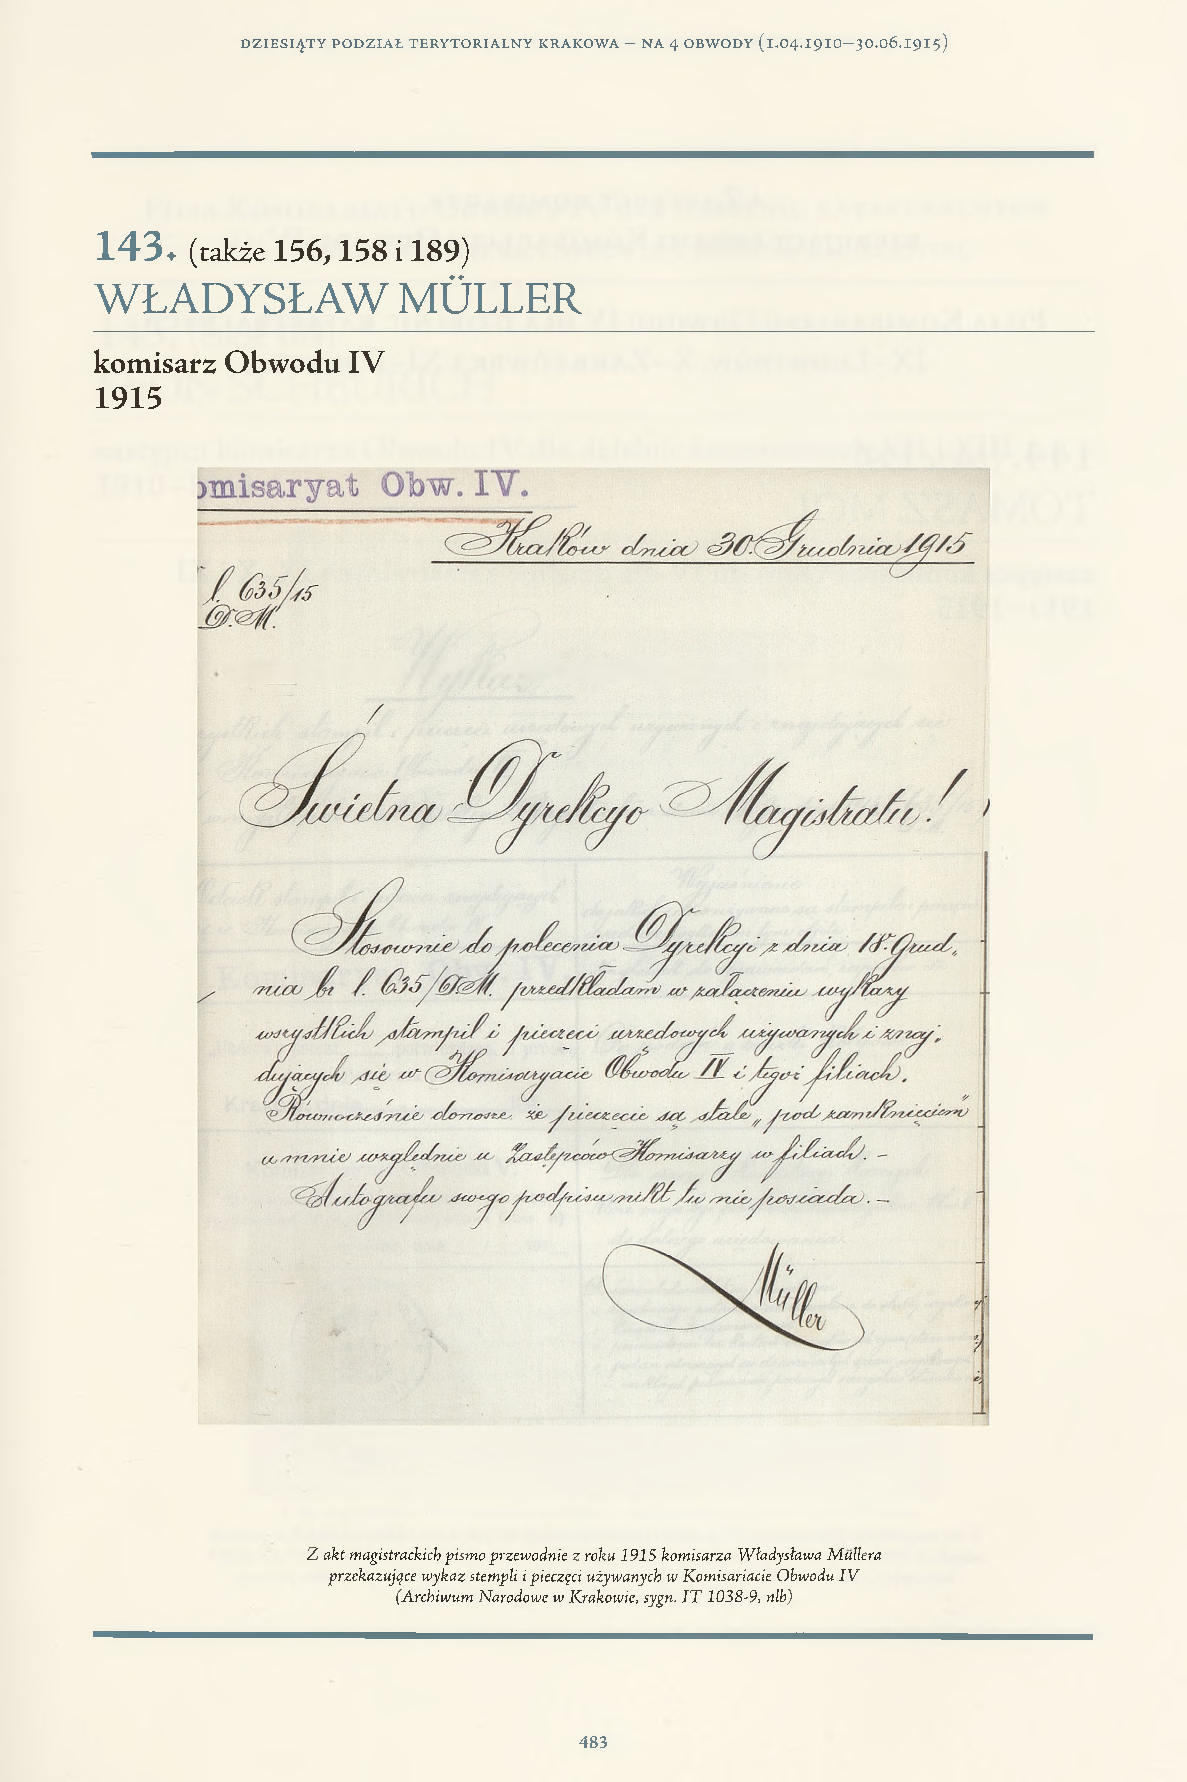 DZIESIĄTY PODZIAŁ TERYTORIALNY KRAKOWA – NA 4 OBWODY (1.04.1910–30.06.1915)
143. (także 156, 158 i 189)
WŁADYSŁAW MÜLLER
komisarz Obwodu IV
1915
omisaryat Obw. IV.
Kraków dnia 30. Grudnia 1915
l. 635/15
D.M.
Świetna Dyrekcyo Magistratu!
Stosownie do polecenia Dyrekcyi z dnia 18. Grud„
nia br l. 635/D.M. przedkładam w załączeniu wykazy
wszystkich stampil i pieczęci urzędowych używanych i znaj„
dujących się w Komisaryacie Obwodu IV i tegoż filiach.
Równocześnie donoszę, że pieczęcie są stale „pod zamknięciem"
u mnie względnie u Zastępców Komisarzy w filiach. –
Autografu swego podpisu nikt tu nie posiada. –
Müller
Z akt magistrackich pismo przewodnie z roku 1915 komisarza Władysława Müllera
przekazujące wykaz stempli i pieczęci używanych w Komisariacie Obwodu IV
(Archiwum Narodowe w Krakowie, sygn. IT 1038-9, nlb)
483